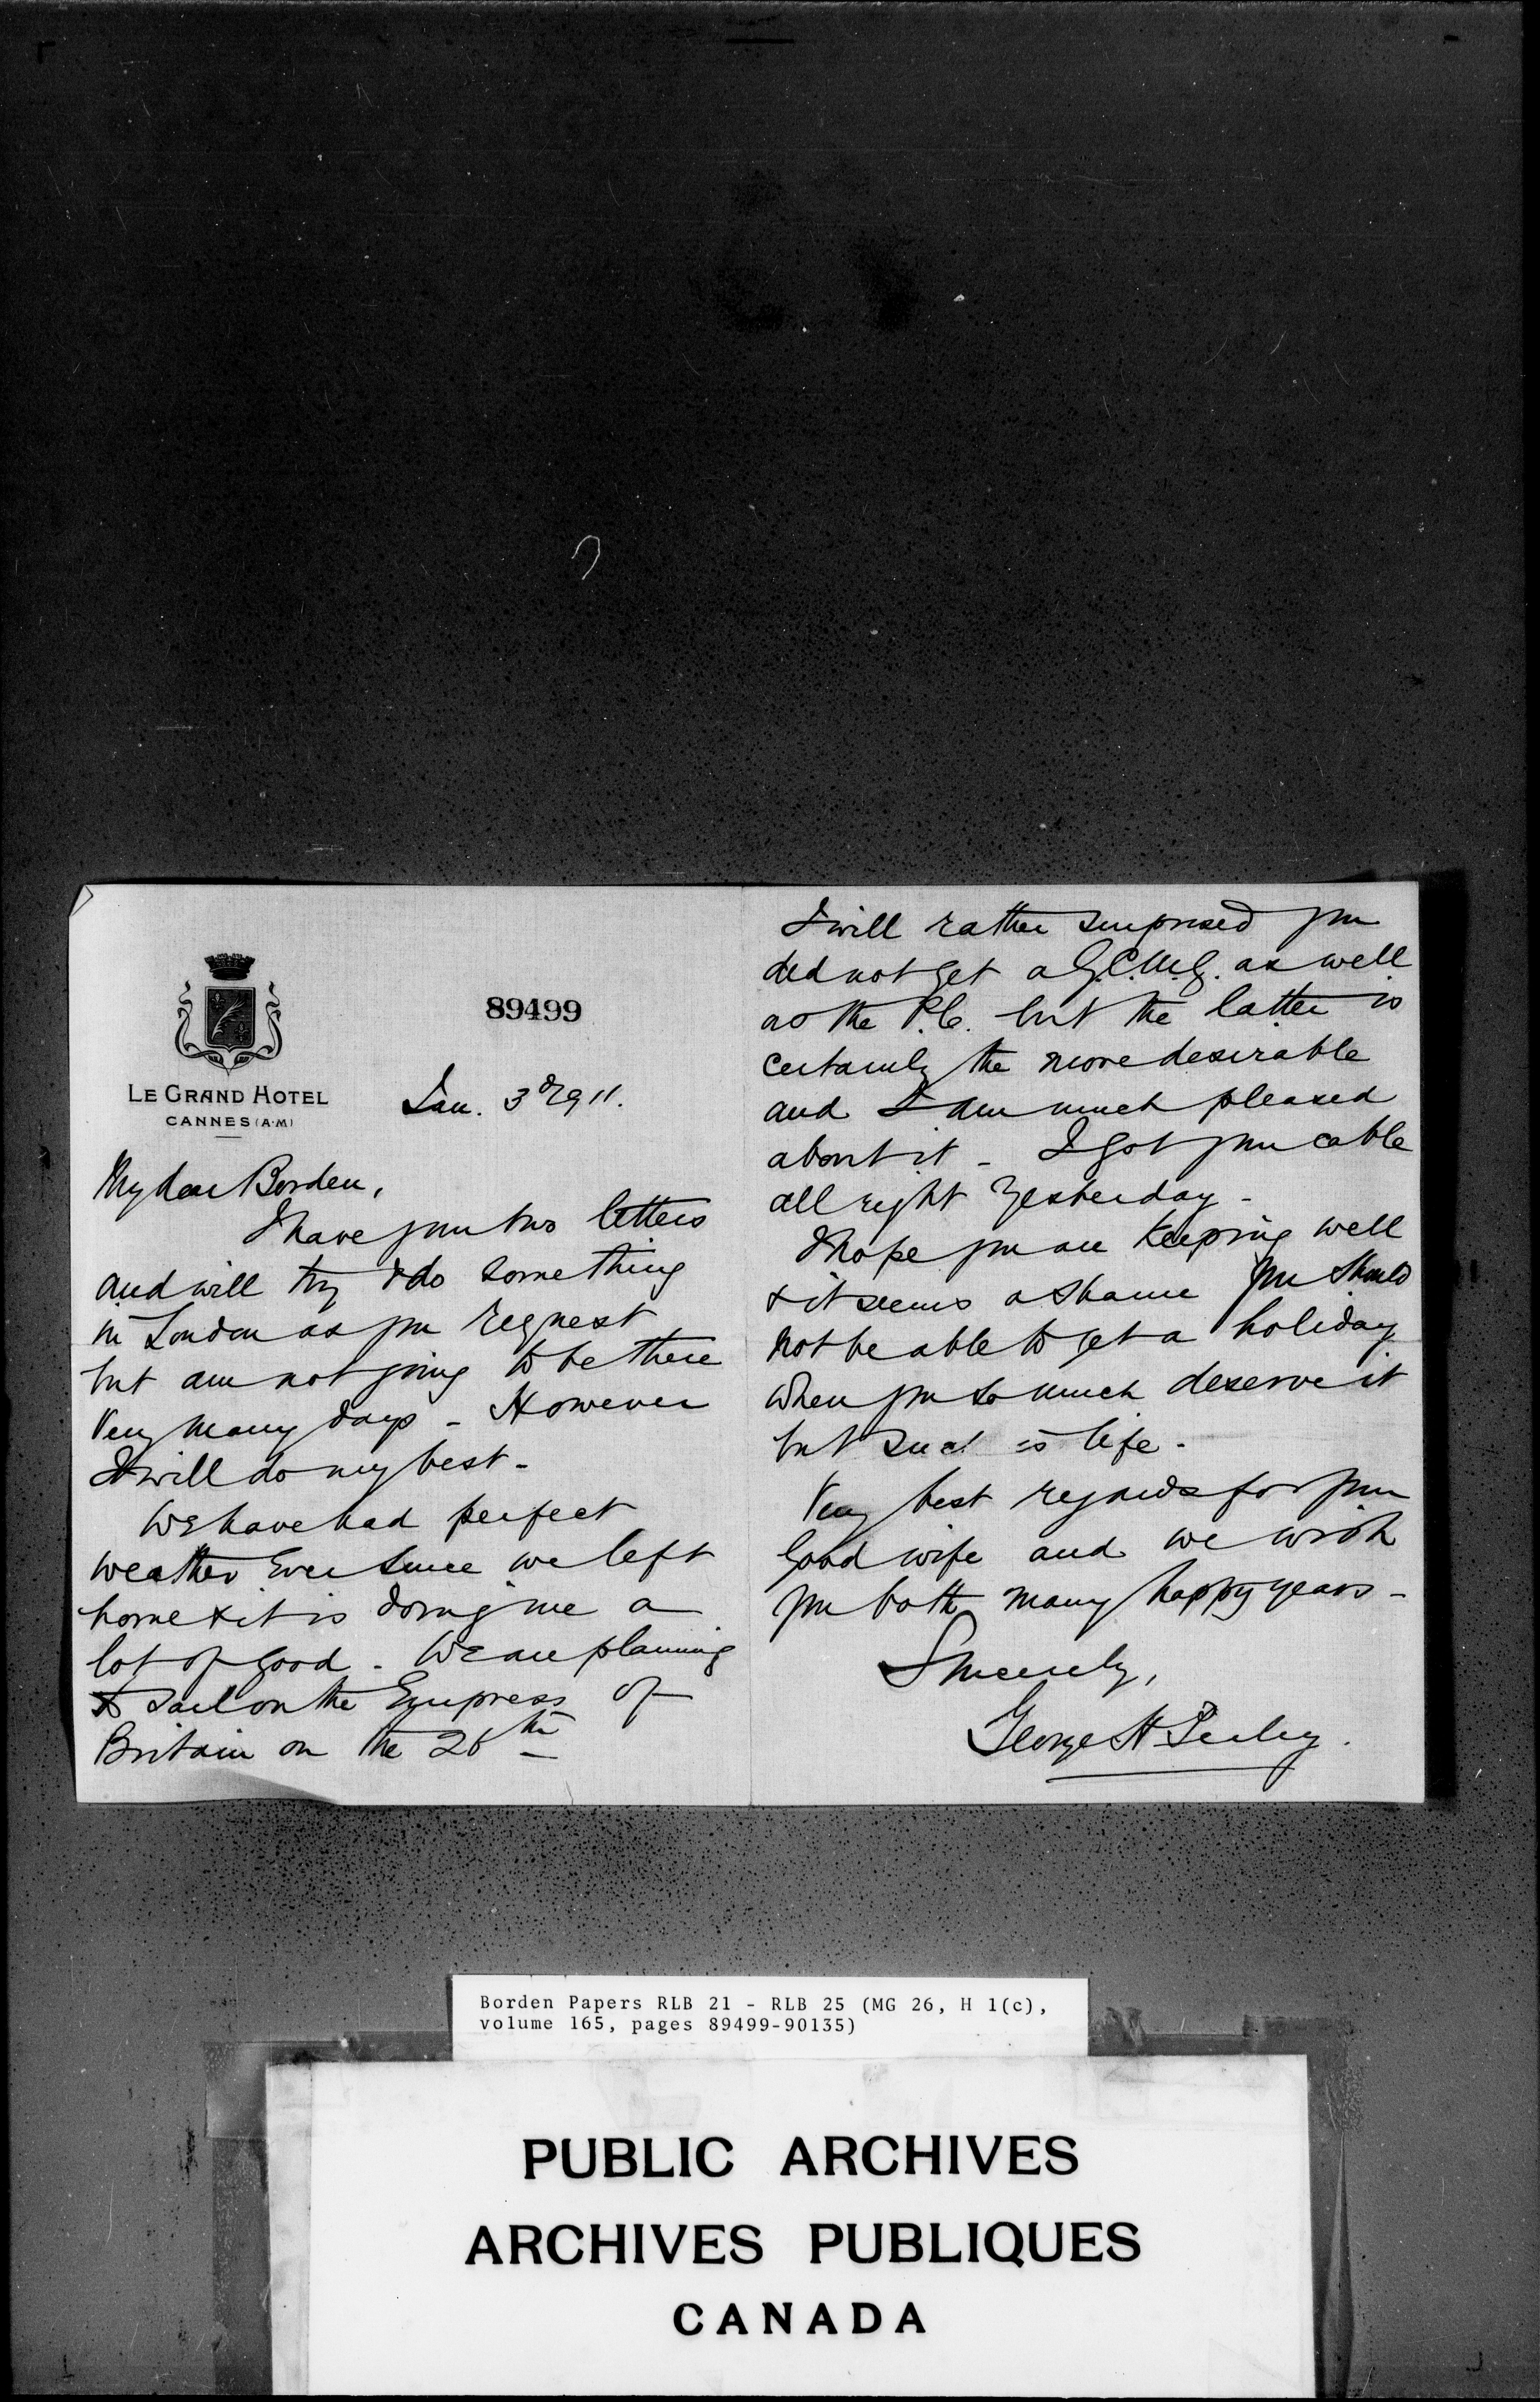 89499
LE GRAND HOTEL
CANNES (A.M)
Jan. 3rd 1911.
My dear Borden,
I have your two letters
and will try & do something
in London as you request
but am not going to be there
very many days - However
I will do my best -
We have had perfect
weather ever since we left
home & it is doing me a
lot of good - We are planning
to sail on the Empress of
Britain on the 26th
I will rather surprised you
did not get a G.C.M.G. as well
as the P.C. but the latter is
certainly the more desirable
and I am much pleased
about it - I got your cable
all right yesterday -
I hope you are keeping well
& it seems a shame you should
not be able to get a holiday
when you so much deserve it
but such is life -
Very best regards for your
good wife and we wish
you both many happy years -
Sincerely,
George H Perley.
Borden Papers RLB 21 - RLB 25 (MG 26, H 1(c),
volume 165, pages 89499-90135)
PUBLIC ARCHIVES
ARCHIVES PUBLIQUES
CANADA